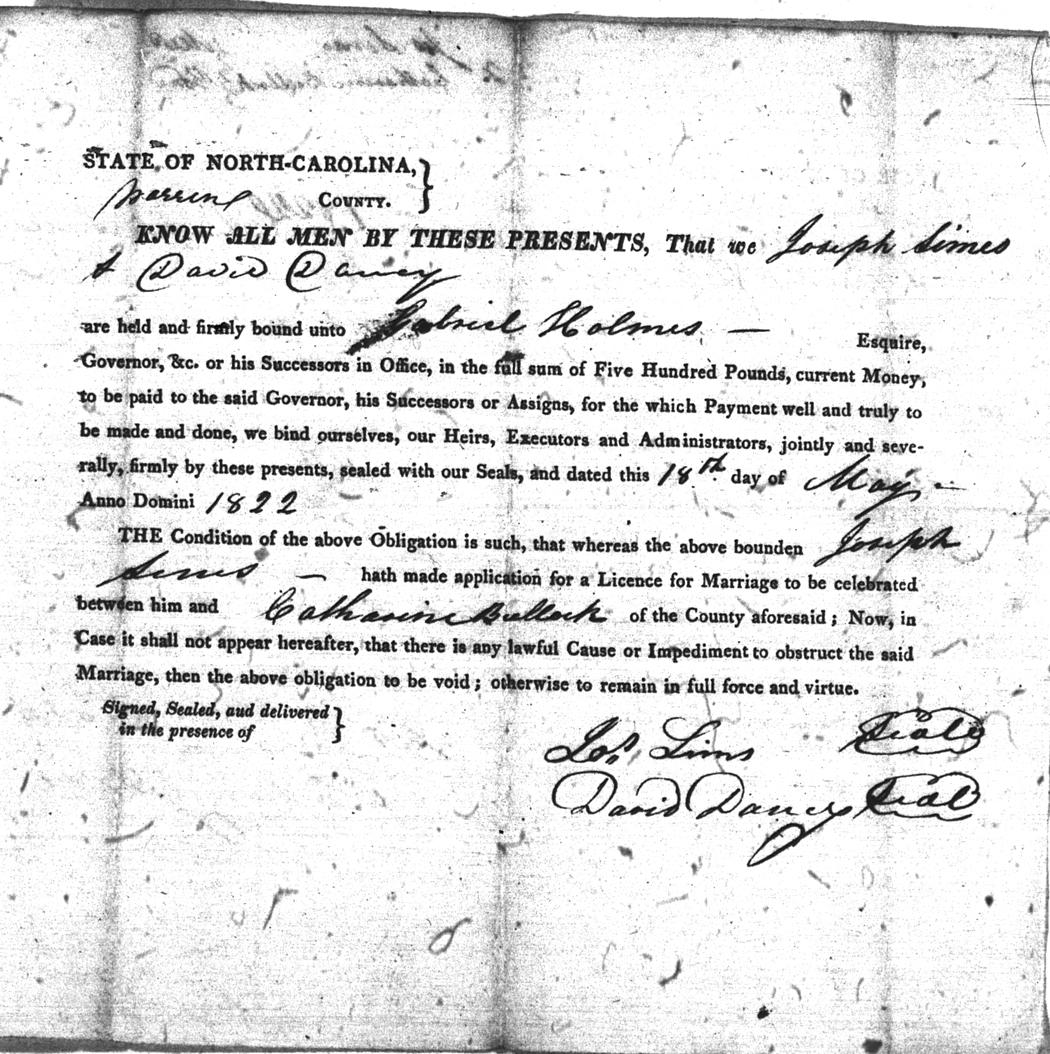 STATE OF NORTH-CAROLINA, }
Warren COUNTY.
KNOW ALL MEN BY THESE PRESENTS, That we Joseph Simes
& David Dancy
are held and firmly bound unto Gabriel Holmes — Esquire,
Governor, &c. or his Successors in Office, in the full sum of Five Hundred Pounds, current Money,
to be paid to the said Governor, his Successors or Assigns, for the which Payment well and truly to
be made and done, we bind ourselves, our Heirs, Executors and Administrators, jointly and seve-
rally, firmly by these presents, sealed with our Seals, and dated this 18th day of May —
Anno Domini 1822
THE Condition of the above Obligation is such, that whereas the above bounden Joseph
Simes — hath made application for a Licence for Marriage to be celebrated
between him and Catharine Bullock of the County aforesaid ; Now, in
Case it shall not appear hereafter, that there is any lawful Cause or Impediment to obstruct the said
Marriage, then the above obligation to be void ; otherwise to remain in full force and virtue.
Signed, Sealed, aud delivered }
in the presence of
Jos. Sims Seal
David Dancy Seal